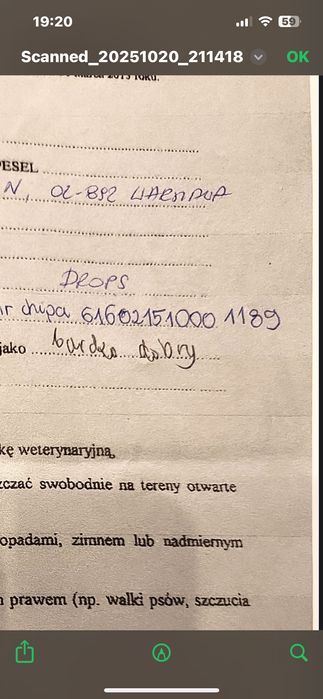 19:20
59
Scanned_20251020_211418
OK
marca 2013 roku.
PESEL
N, 02-892 WARSZAWA
DROPS
nr chipa 616021510001189
jako bardzo dobry
kę weterynaryjną,
szczać swobodnie na tereny otwarte
opadami, zimnem lub nadmiernym
n prawem (np. walki psów, szczucia